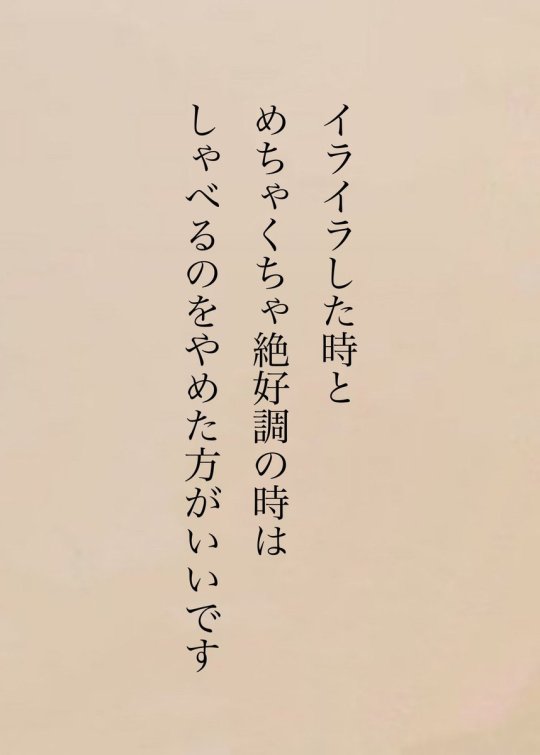 イライラした時と
めちゃくちゃ絶好調の時は
しゃべるのをやめた方がいいです